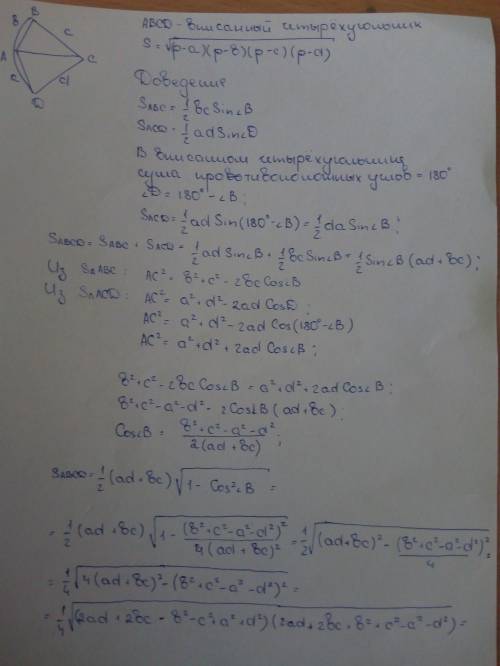 B
в
c
A
C
c
d
D
ABCD - вписанный четырёхугольник
S = √(p-a)(p-в)(p-c)(p-d)
Доведение
SABC = 1/2 вc Sin∠B
SACD = 1/2 ad Sin∠D
В вписанном четырёхугольнике
сума противоположных углов = 180°
∠D = 180° - ∠B;
SACD = 1/2 ad Sin(180° - ∠B) = 1/2 da Sin∠B;
SABCD = SABC + SACD = 1/2 ad Sin∠B + 1/2 вc Sin∠B = 1/2 Sin∠B (ad + вc);
Из S△ABC: AC² = в² + c² - 2вc Cos∠B
Из S△ACD: AC² = a² + d² - 2ad CosD;
AC² = a² + d² - 2ad Cos(180° - ∠B)
AC² = a² + d² + 2ad Cos∠B;
в² + c² - 2вc Cos∠B = a² + d² + 2ad Cos∠B;
в² + c² - a² - d² - 2Cos∠B (ad + вc);
Cos∠B = в² + c² - a² - d² / 2(ad + вc);
SABCD = 1/2 (ad + вc) √1 - Cos²∠B =
= 1/2 (ad + вc) √1 - (в² + c² - a² - d²)² / 4(ad + вc)² = 1/2 √(ad + вc)² - (в² + c² - a² - d²)² / 4 =
= 1/4 √4(ad + вc)² - (в² + c² - a² - d²)² =
= 1/4 √(2ad + 2вc - в² - c² + a² + d²)(2ad + 2вc + в² + c² - a² - d²) =